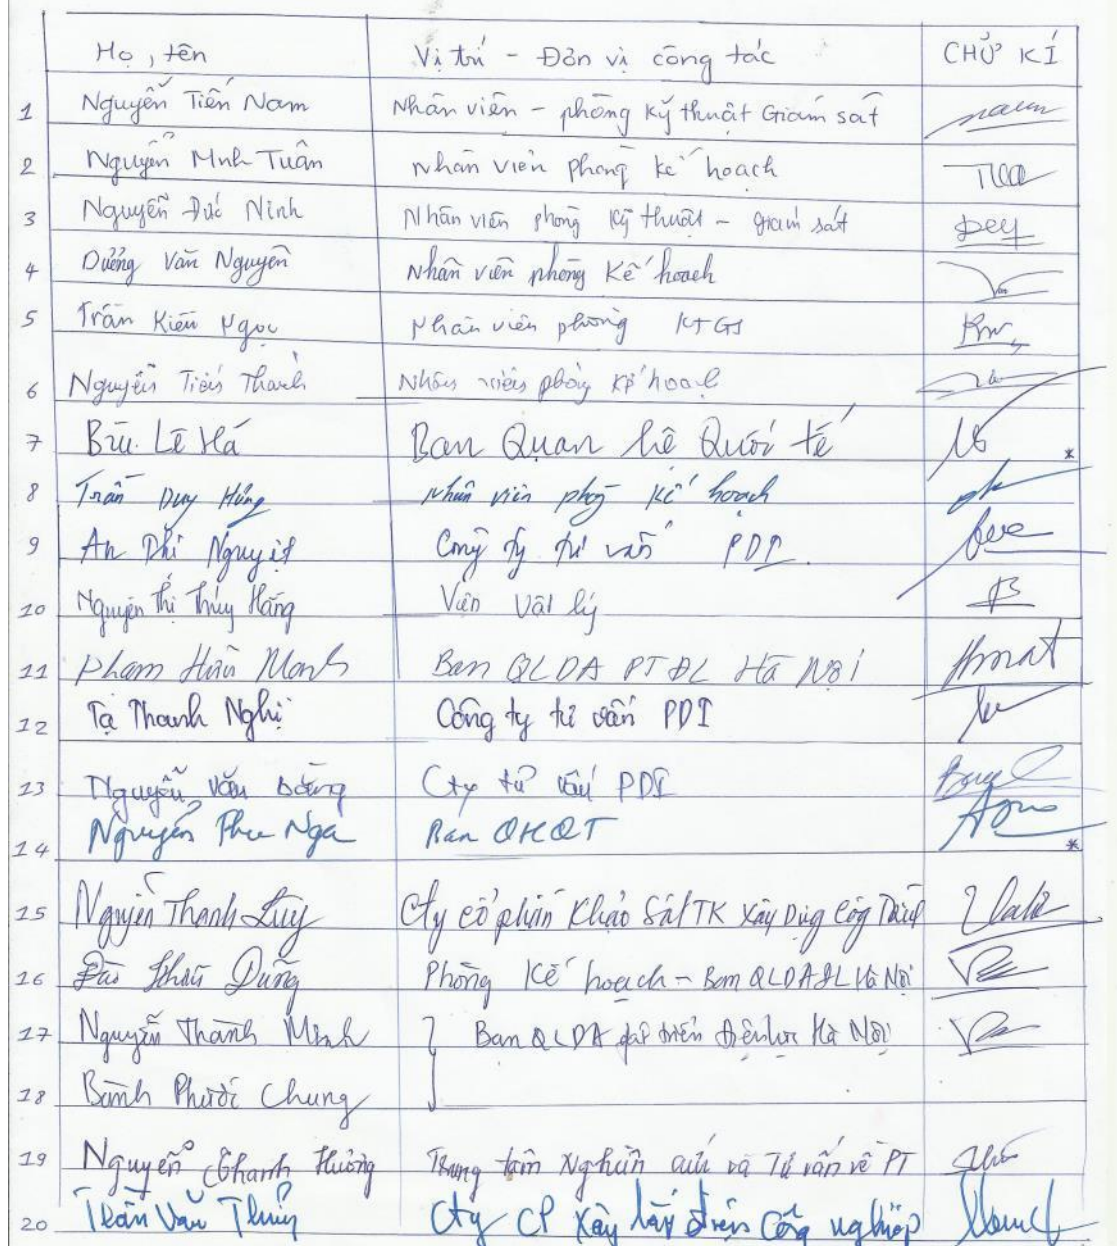 Họ, tên Vị trí - Đơn vị công tác CHỮ KÍ
1 Nguyễn Tiến Nam Nhân viên - phòng kỹ thuật Giám sát
2 Nguyễn Minh Tuân Nhân viên phòng kế hoạch
3 Nguyễn Đức Ninh Nhân viên phòng kỹ thuật - giám sát
4 Dương Văn Nguyên Nhân viên phòng Kế hoạch
5 Trần Kiên Ngọc Nhân viên phòng KTGS
6 Nguyễn Tiến Thành Nhân viên phòng kế hoạch
7 Lê Hà Ban Quan hệ Quốc tế
8 Trần Duy Hưng Nhân viên phòng kế hoạch
9 An Nguyệt Công ty tư vấn PDI
10 Nguyễn Thị Thúy Hằng Viện Vật lý
11 Phạm Hữu Manh Ban QLDA PTĐL Hà Nội
12 Tạ Thanh Nghị Công ty tư vấn PDI
13 Nguyễn Văn Cty tư vấn PDI
14 Nguyễn Nga Ban QHQT
15 Nguyễn Thanh Cty cổ phần Khảo Sát TK Xây Dựng Công
16 Dũng Phòng Kế hoạch - Ban QLDA ĐL Hà Nội
17 Nguyễn Thành Minh Ban QLDA phát triển điện lực Hà Nội
18 Phước Chung
19 Nguyễn Thanh Hương Trung tâm Nghiên cứu và Tư vấn về PT
20 Trần Văn Cty CP Xây lắp điện Công nghiệp